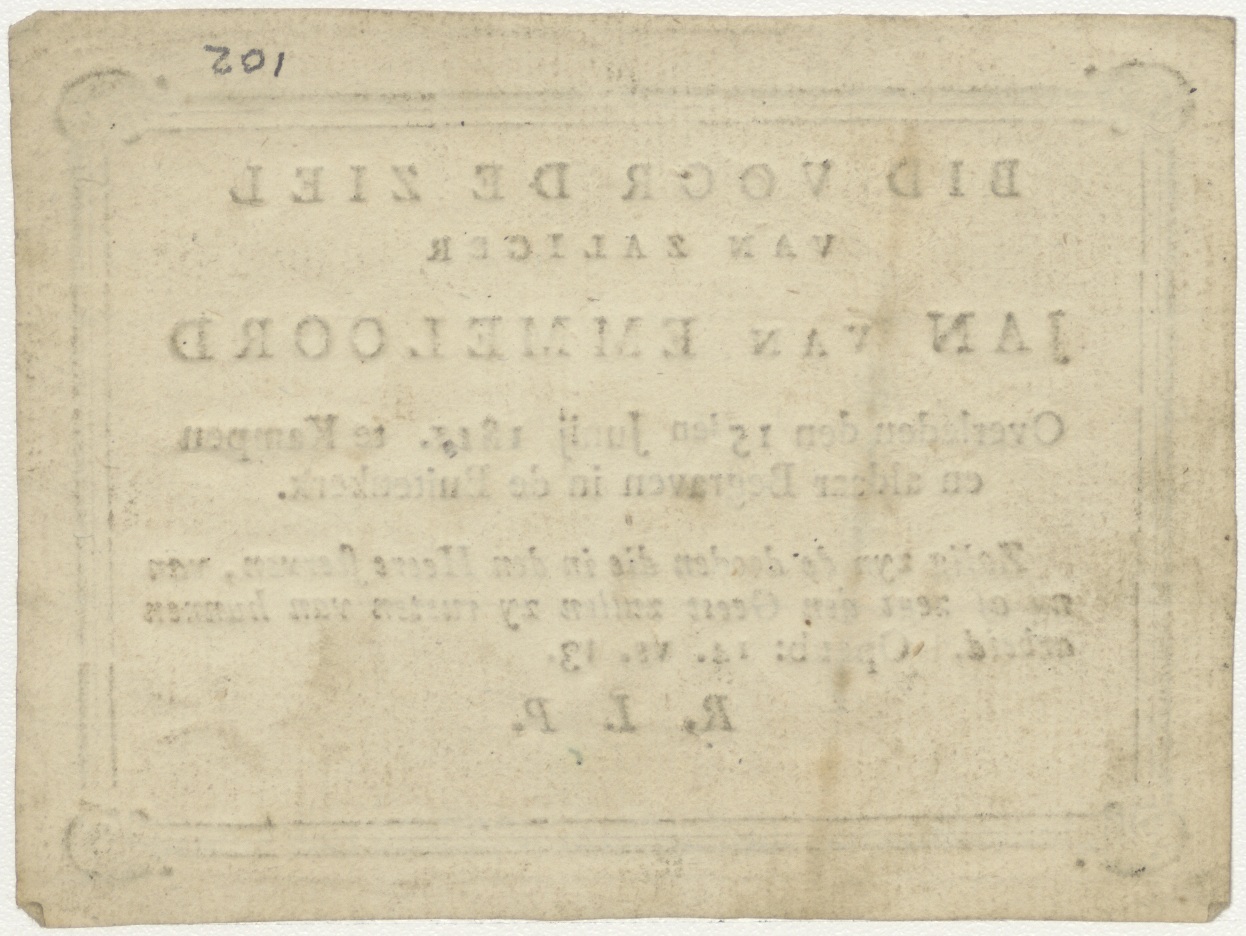 102
BID VOOR DE ZIEL
VAN ZALIGER
JAN VAN EMMELOORD
Overleden den 15den Junij 1815. te Kampen
en aldaar Begraven in de Buitenkerk.
Zalig zyn de dooden die in den Heere sterven, van
nu af zegt den Geest zullen zy rusten van hunnen
arbeid. Openb: 14. vs. 13.
R. I. P.